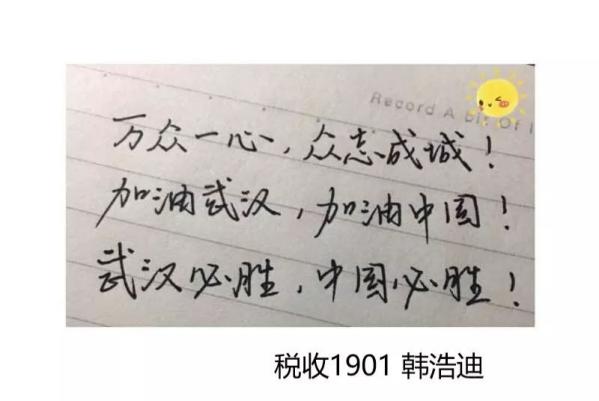 Record A bit Of
万众一心,众志成城!
加油武汉,加油中国!
武汉必胜,中国必胜!
税收1901 韩浩迪